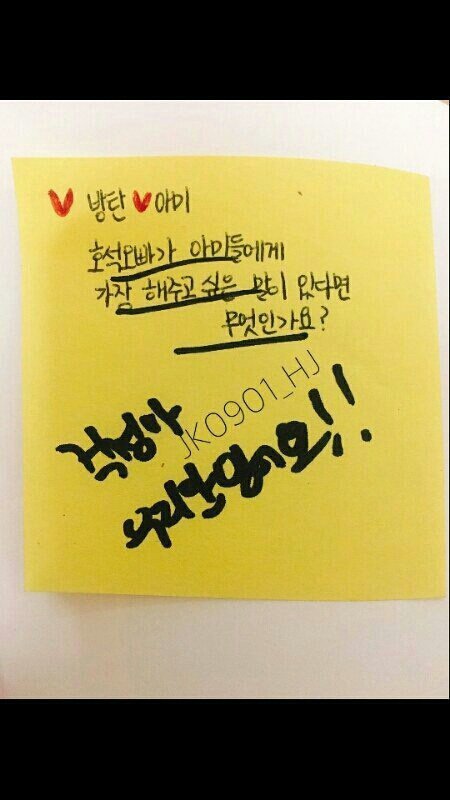 ♥ 방탄 ♥아미
호석오빠가 아미들에게
가장 해주고 싶은 말이 있다면
무엇인가요?
JK0901_HJ
걱정마
있어요!!